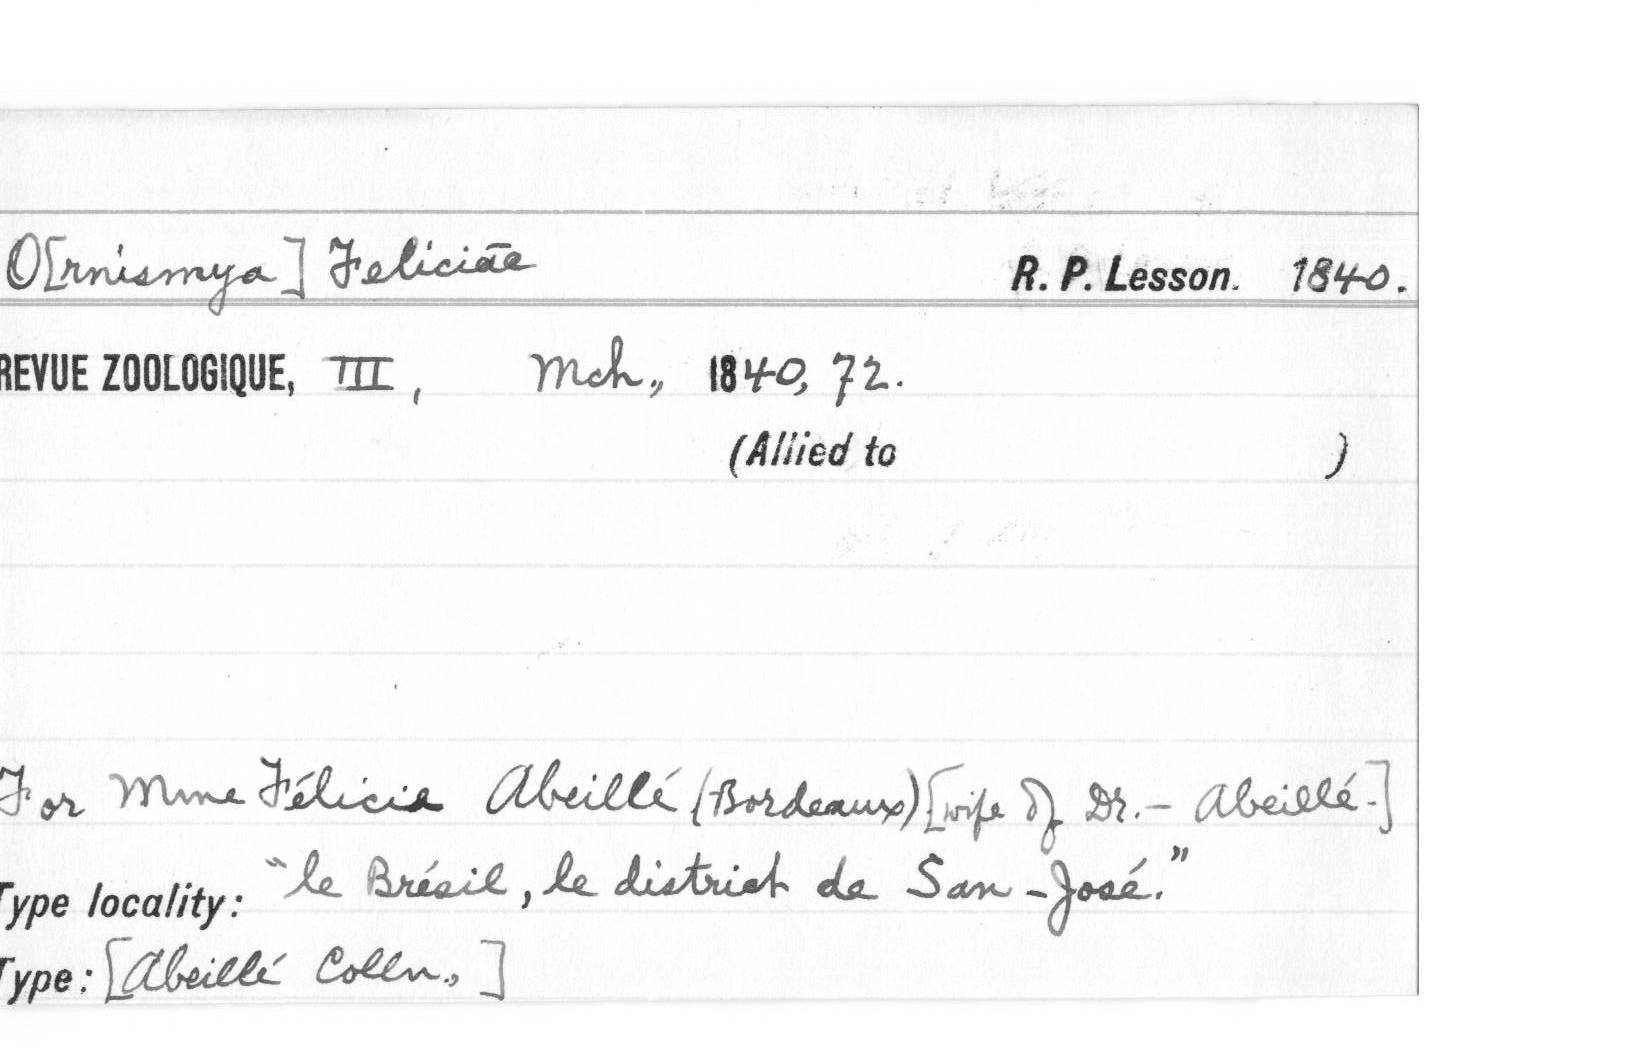 O[rnismya] Feliciae R. P. Lesson. 1840.
REVUE ZOOLOGIQUE, III, Mch., 1840, 72.
(Allied to )
For Mme Félicie Abeillé (Bordeaux) [wife of Dr. - Abeillé-]
Type locality: "le Brésil, le district de San-José."
Type: [Abeillé Colln.,]